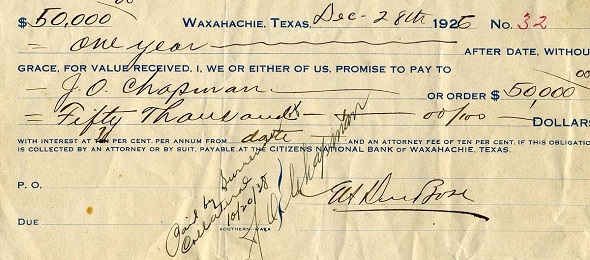 $ 50,000 WAXAHACHIE, TEXAS, Dec - 28th 1925 No. 32
= one year AFTER DATE, WITHOU
GRACE, FOR VALUE RECEIVED, I, WE OR EITHER OF US, PROMISE TO PAY TO
= J.O. Chapman OR ORDER $ 50,000 00
= Fifty Thousand 00/100 DOLLARS
WITH INTEREST AT TEN PER CENT. PER ANNUM FROM date AND AN ATTORNEY FEE OF TEN PER CENT. IF THIS OBLIGATIO
IS COLLECTED BY AN ATTORNEY OR BY SUIT. PAYABLE AT THE CITIZENS NATIONAL BANK OF WAXAHACHIE, TEXAS.
P. O.
DUE
Paid by
Collateral
10/20/28
J O Chapman
SOUTHERN-WAXA